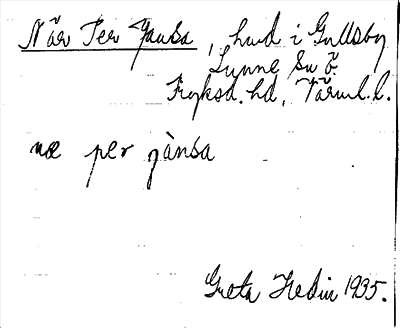 När Per Jansa, hmd i Gullsby
Sunne sn Ö.
Fryksd. hd, Värml. l.
næ per jànsa
Greta Hedin 1935.